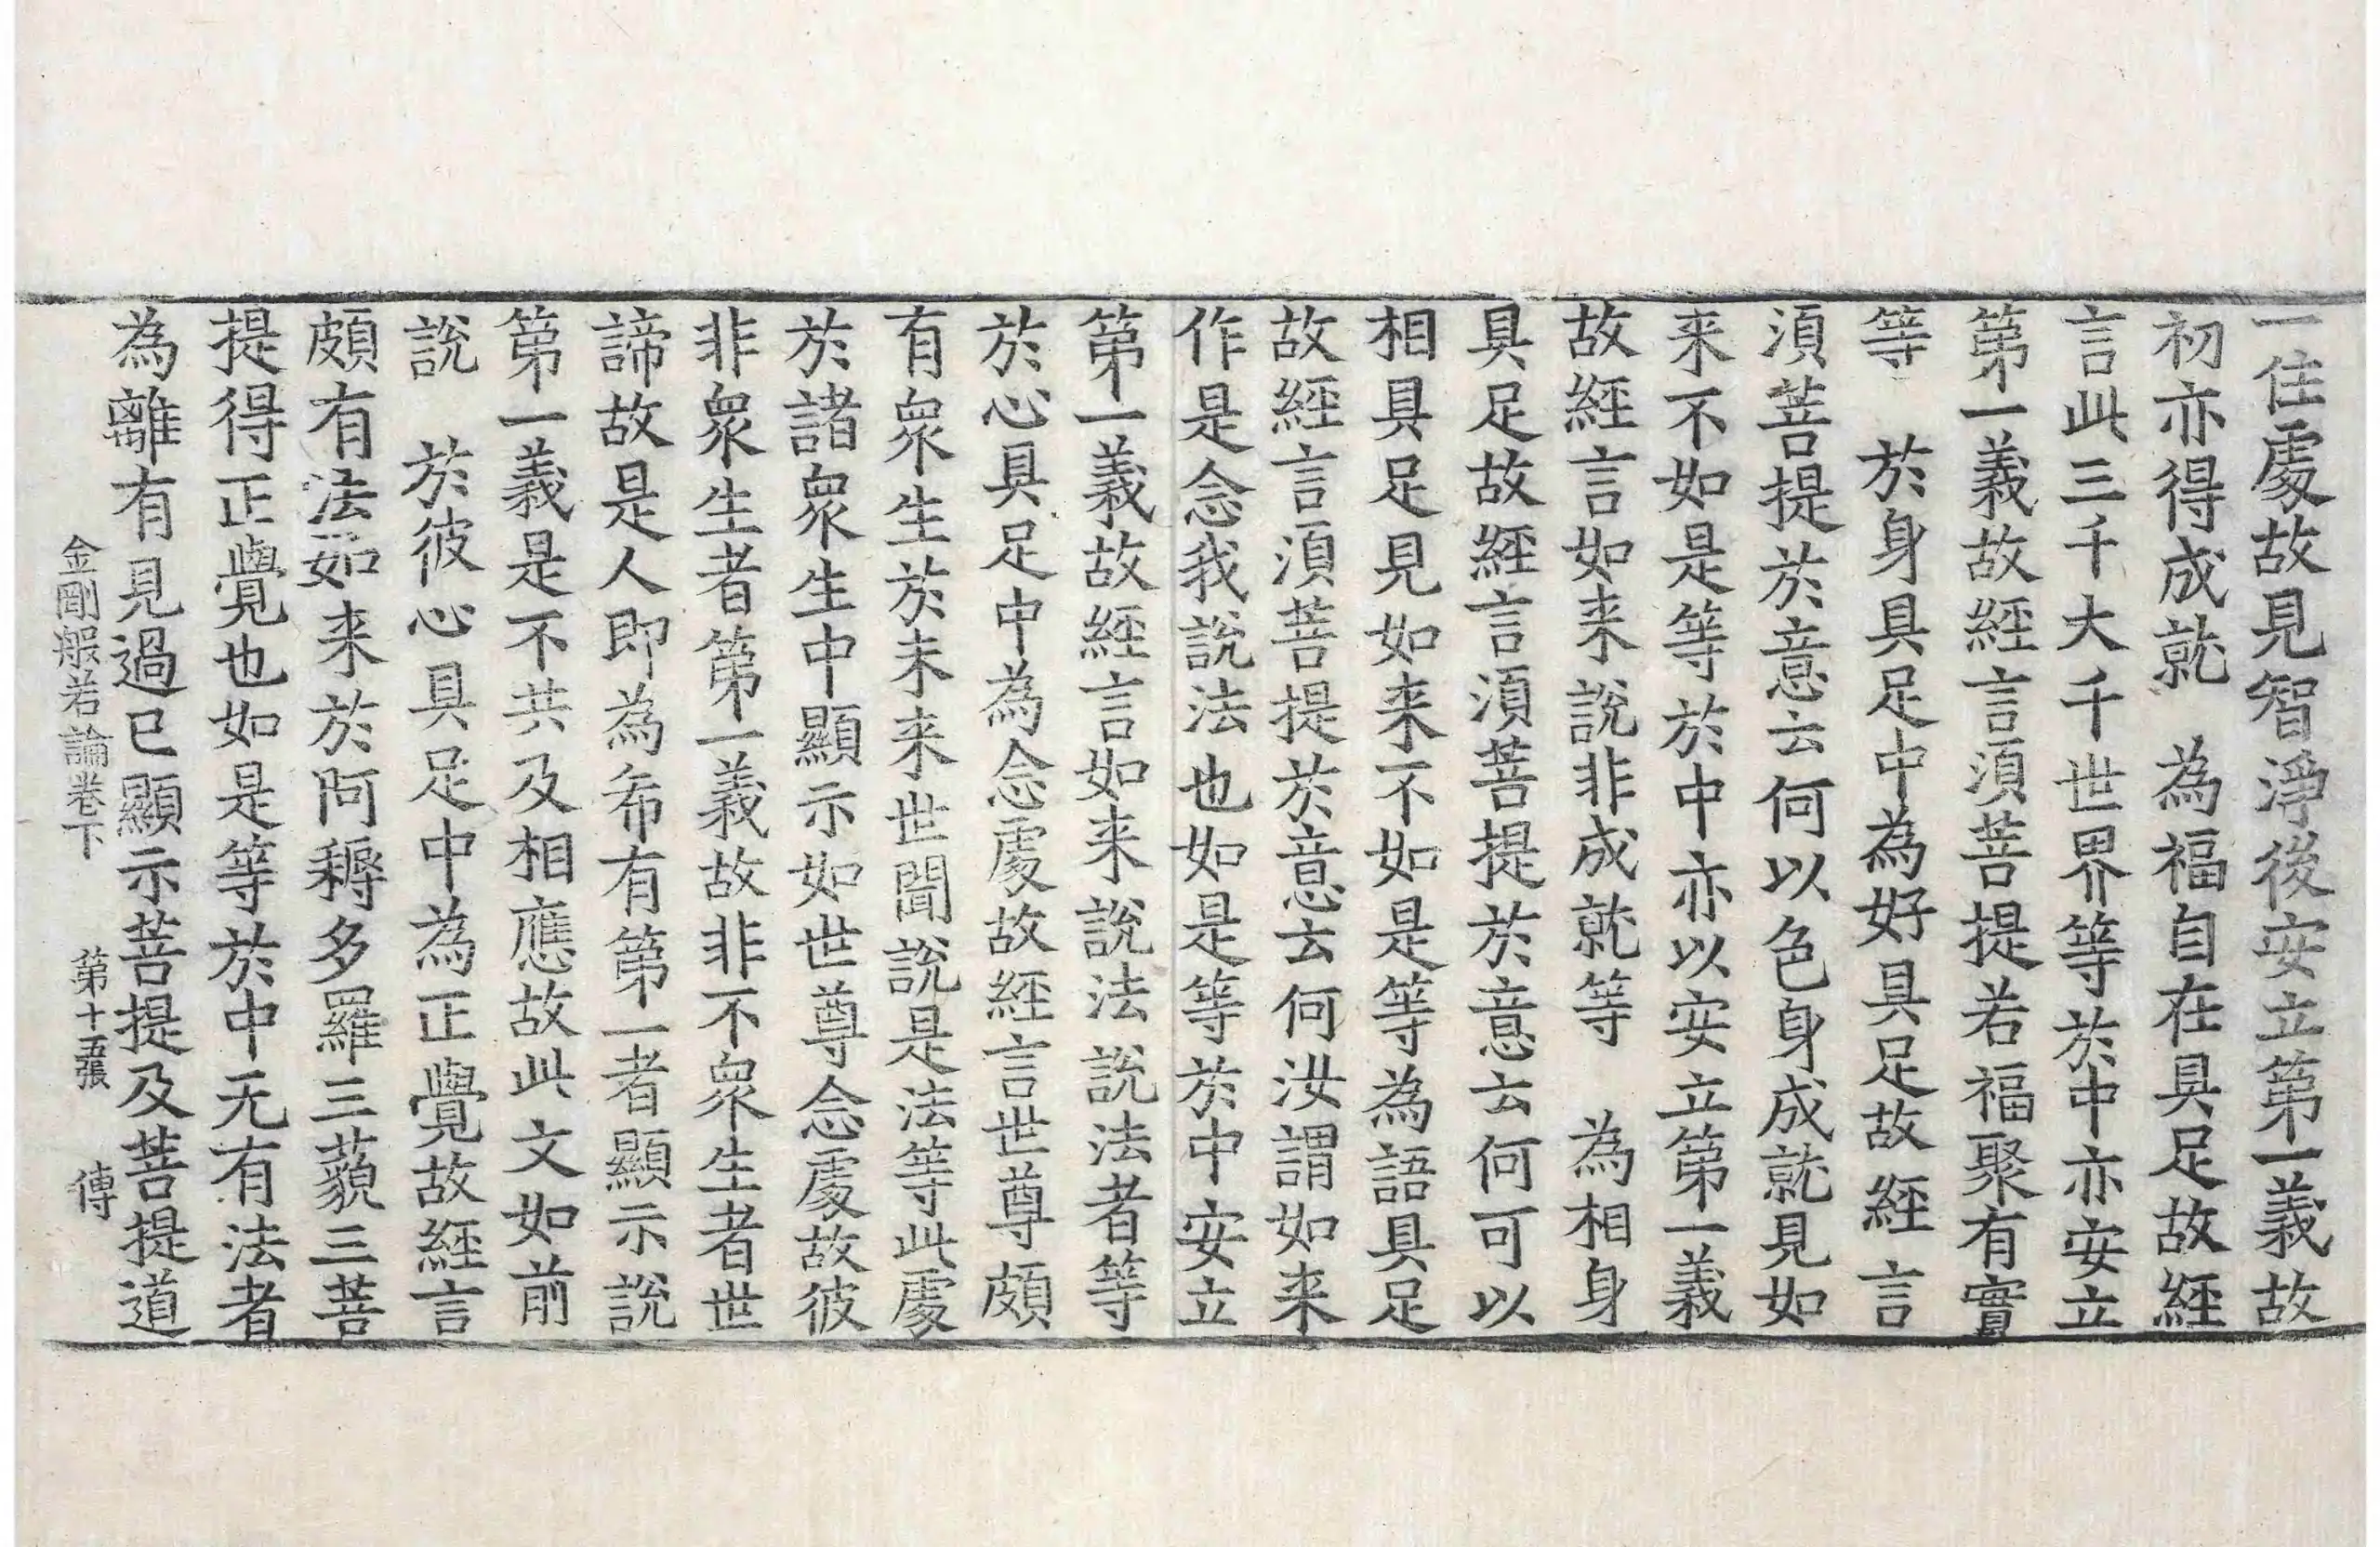 一住處故見智淨後安立第一義故
初亦得成就　為福自在具足故經
言此三千大千世界等於中亦安立
第一義故經言湏菩提若福聚有實
等　於身具足中為好具足故經言
湏菩提於意云何以色身成就見如
来不如是等於中亦以安立第一義
故經言如来說非成就等　為相身
具足故經言湏菩提於意云何可以
相具足見如来不如是等為語具足
故經言湏菩提於意云何汝謂如来
作是念我說法也如是等於中安立
第一義故經言如来說法說法者等
於心具足中為念處故經言世尊頗
有衆生於未来世聞說是法等此處
於諸衆生中顯示如世尊念處故彼
非衆生者第一義故非不衆生者世
諦故是人即為希有第一者顯示說
第一義是不共及相應故此文如前
說　於彼心具足中為正覺故經言
頗有法如来於阿耨多羅三藐三菩
提得正覺也如是等於中无有法者
為離有見過已顯示菩提及菩提道
金剛般若論卷下　第十五張　傳